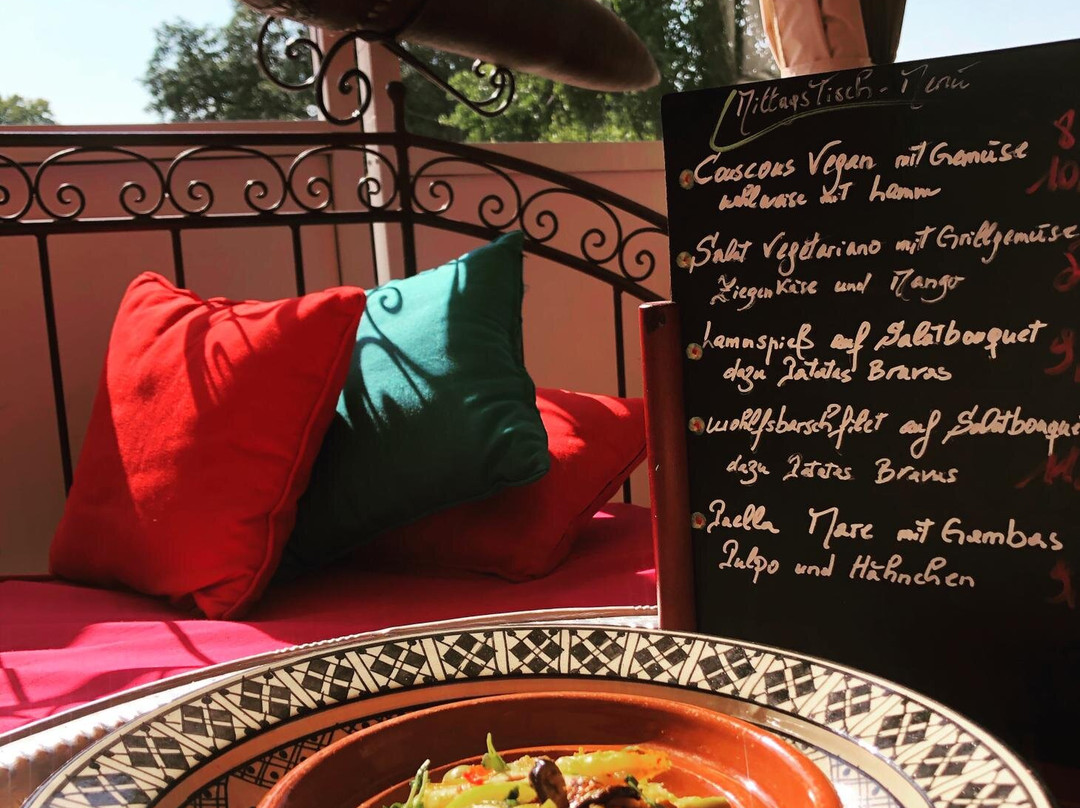 Mittagstisch - Menü
Couscous Vegan mit Gemüse 8
wahlweise mit Lamm 10
Salat Vegetariano mit Grillgemüse
Ziegenkäse und Mango
Lammspieß auf Salatbouquet
dazu Patatas Bravas
Wohlfsbarschfilet auf Salatbouque
dazu Patatas Bravas
Paella Mare mit Gambas
Pulpo und Hähnchen